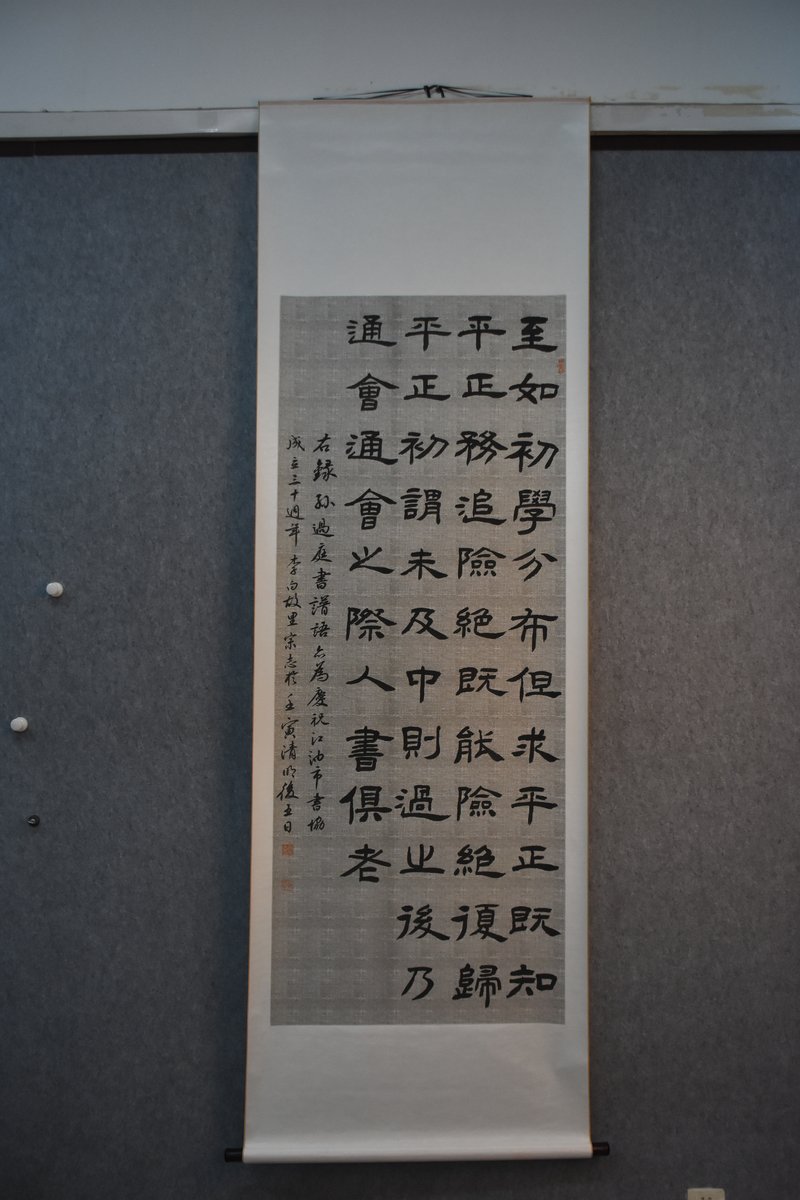 至如初學分布但求平正既知
平正務追險絕既能險絕復歸
平正初謂未及中則過之後乃
通會通會之際人書俱老
右錄孫過庭書譜語以為慶祝江油市書協
成立三十週年 李白故里宗志於壬寅清明後五日